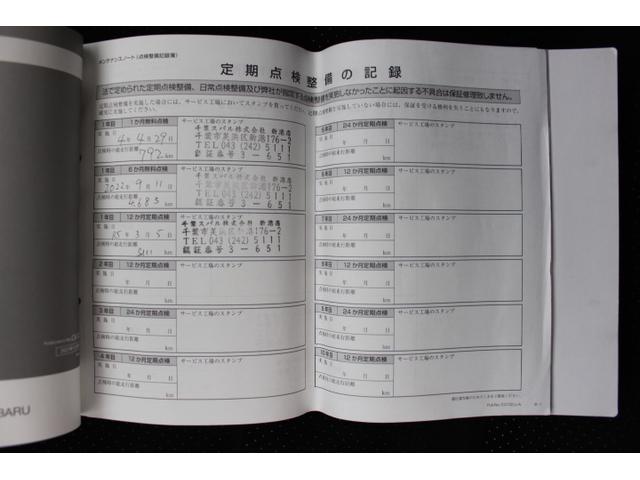 メンテナンスノート（点検整備記録簿）
定期点検整備の記録
法で定められた定期点検整備、日常点検整備及び弊社が指定する点検整備を実施しなかったことに起因する不具合は保証修理致しません。
1年目 1か月無料点検 サービス工場のスタンプ
実施日
4年4月29日
点検時の総走行距離
792 km
千葉スバル株式会社 新港店
千葉市美浜区新港176-2
TEL043(242)5111
認証番号3-651
1年目 6か月点検 サービス工場のスタンプ
実施日
2022年9月11日
点検時の総走行距離
4683 km
千葉スバル株式会社 新港店
千葉市美浜区新港176-2
TEL043(242)5111
認証番号3-651
1年目 12か月定期点検 サービス工場のスタンプ
実施日
R5年3月5日
点検時の総走行距離
km
千葉スバル株式会社 新港店
千葉市美浜区新港176-2
TEL043(242)5111
認証番号3-651
2年目 12か月定期点検 サービス工場のスタンプ
実施日
年 月 日
点検時の総走行距離
km
3年目 24か月定期点検 サービス工場のスタンプ
実施日
年 月 日
点検時の総走行距離
km
4年目 12か月定期点検 サービス工場のスタンプ
実施日
年 月 日
点検時の総走行距離
km
5年目 24か月定期点検 サービス工場のスタンプ
実施日
年 月 日
点検時の総走行距離
km
6年目 12か月定期点検 サービス工場のスタンプ
実施日
年 月 日
点検時の総走行距離
km
7年目 24か月定期点検 サービス工場のスタンプ
実施日
年 月 日
点検時の総走行距離
km
8年目 12か月定期点検 サービス工場のスタンプ
実施日
年 月 日
点検時の総走行距離
km
9年目 24か月定期点検 サービス工場のスタンプ
実施日
年 月 日
点検時の総走行距離
km
10年目 12か月定期点検 サービス工場のスタンプ
実施日
年 月 日
点検時の総走行距離
km
BARU